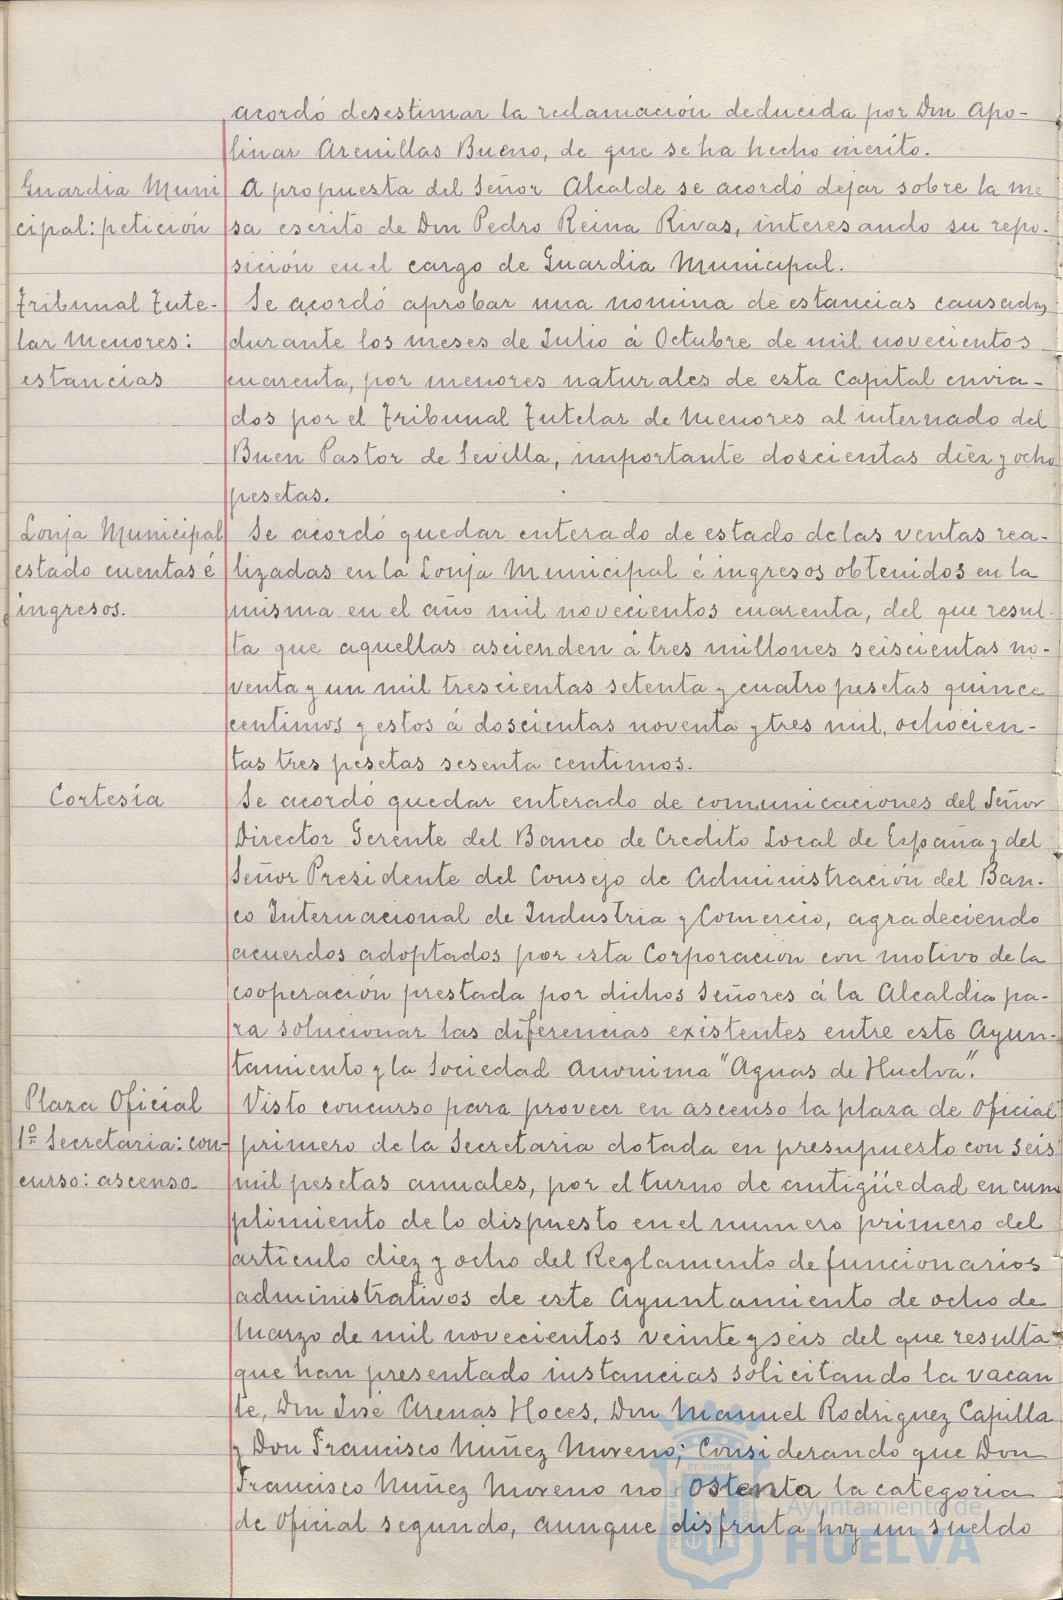 acordó desestimar la reclamación deducida por Don Apo-
linar Arenillas Bueno, de que se ha hecho mérito.
Guardia Muni
cipal: petición
A propuesta del Señor Alcalde se acordó dejar sobre la me
sa escrito de Don Pedro Reina Rivas, interesando su repo-
sición en el cargo de Guardia Municipal.
Tribunal Tute-
lar Menores:
estancias
Se acordó aprobar una nomina de estancias causadas
durante los meses de Julio á Octubre de mil novecientos
cuarenta, por menores naturales de esta Capital envia-
dos por el Tribunal Tutelar de Menores al internado del
Buen Pastor de Sevilla, importante doscientas diez y ocho
pesetas.
Lonja Municipal
estado cuentas é
ingresos.
Se acordó quedar enterado de estado de las ventas rea-
lizadas en la Lonja Municipal é ingresos obtenidos en la
misma en el año mil novecientos cuarenta, del que resul-
ta que aquellas ascienden á tres millones seiscientas no-
venta y un mil trescientas setenta y cuatro pesetas quince
centimos y estos á doscientas noventa y tres mil, ochocien-
tas tres pesetas sesenta centimos.
Cortesía
Se acordó quedar enterado de comunicaciones del Señor
Director Gerente del Banco de Credito Local de España y del
Señor Presidente del Consejo de Administración del Ban-
co Internacional de Industria y Comercio, agradeciendo
acuerdos adoptados por esta Corporacion con motivo de la
cooperación prestada por dichos Señores á la Alcaldia pa-
ra solucionar las diferencias existentes entre este Ayun-
tamiento y la Sociedad Anonima "Aguas de Huelva".
Plaza Oficial
1º Secretaria: con-
curso: ascenso
Visto concurso para proveer en ascenso la plaza de Oficial
primero de la Secretaria dotada en presupuesto con seis
mil pesetas anuales, por el turno de antigüedad en cum
plimiento de lo dispuesto en el numero primero del
artículo diez y ocho del Reglamento de funcionarios
administrativos de este Ayuntamiento de ocho de
Marzo de mil novecientos veinte y seis del que resulta
que han presentado instancias solicitando la vacan
te, Don José Arenas Hoces, Don Manuel Rodriguez Capilla
y Don Francisco Nuñez Moreno; Considerando que Don
Francisco Nuñez Moreno no ostenta la categoria
de Oficial segundo, aunque disfruta hoy un sueldo
Ayuntamiento de
HUELVA